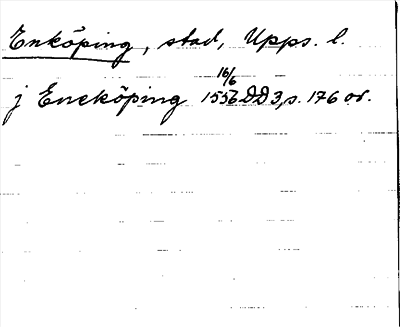 Enköping, stad, Upps. l.
16/6
j Eneköping 1556 DD 3, s. 176 or.